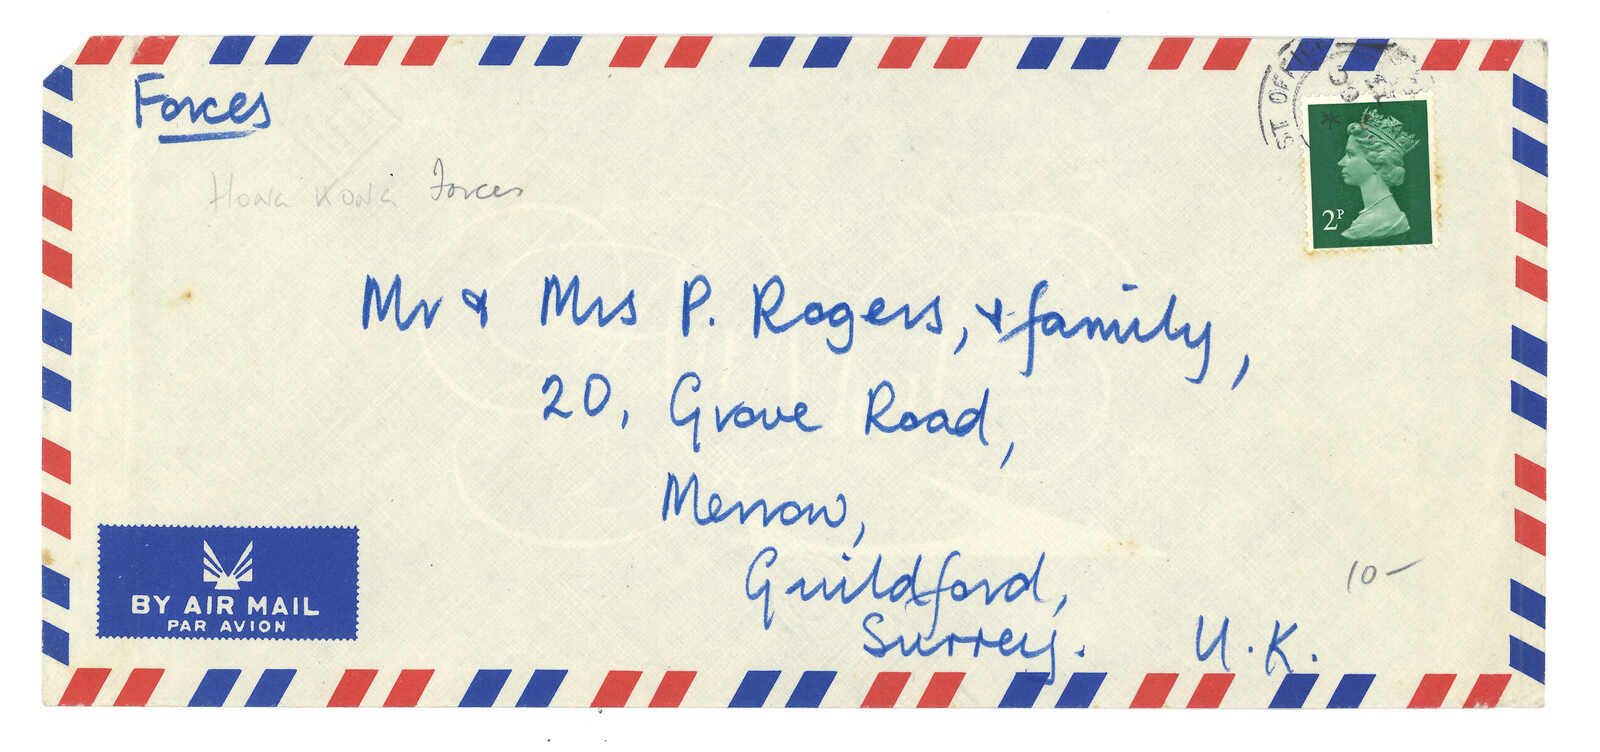 Forces
Hong Kong Forces
ST OFFI
2P
Mr & Mrs P. Rogers, & family,
20, Grove Road,
Merrow,
Guildford,
Surrey. U.K.
10-
BY AIR MAIL
PAR AVION